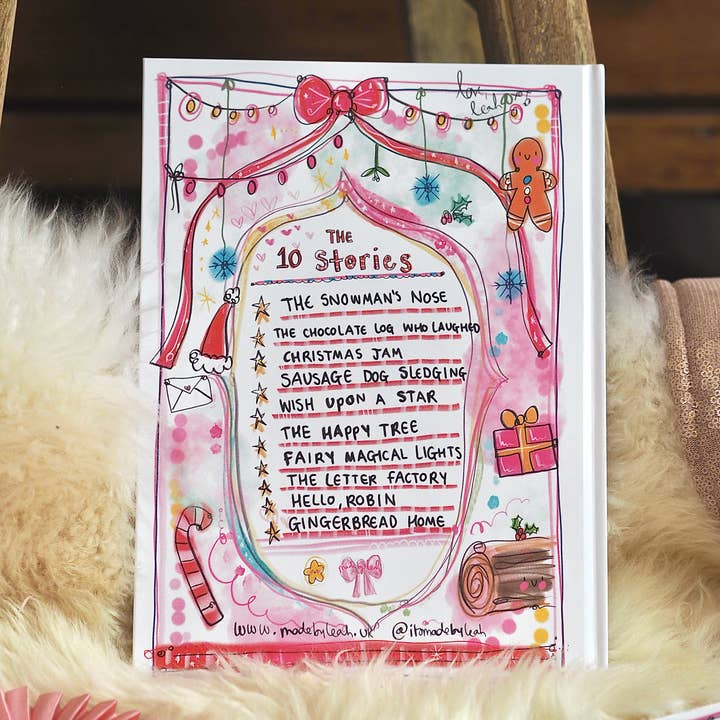 love
leah xox
THE
10 Stories
THE SNOWMAN'S NOSE
THE CHOCOLATE LOG WHO LAUGHED
CHRISTMAS JAM
SAUSAGE DOG SLEDGING
WISH UPON A STAR
THE HAPPY TREE
FAIRY MAGICAL LIGHTS
THE LETTER FACTORY
HELLO, ROBIN
GINGERBREAD HOME
www.madebyleah.uk @itsmadebyleah